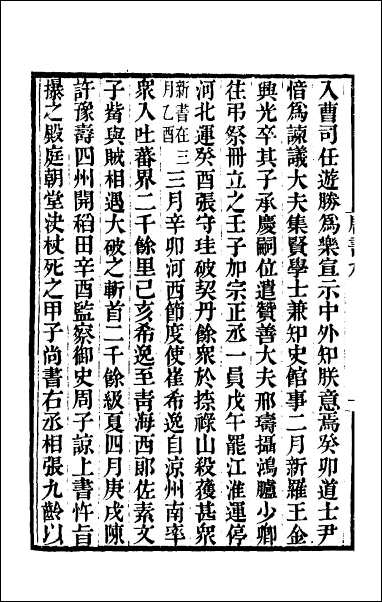 入曹司任遊勝爲樂宣示中外知朕意焉癸卯道士尹
愔爲諫議大夫集賢學士兼知史館事二月新羅王金
興光卒其子承慶嗣位遣贊善大夫邢璹攝鴻臚少卿
往弔祭冊立之壬子加宗正丞一員戊午罷江淮運停
河北運癸酉張守珪破契丹餘衆於捺祿山殺獲甚衆
新書在三
月乙酉
三月辛卯河西節度使崔希逸自涼州南率
衆入吐蕃界二千餘里己亥希逸至青海西郎佐素文
子觜與賊相遇大破之斬首二千餘級夏四月庚戌陳
許豫壽四州開稻田辛酉監察御史周子諒上書忤旨
㩧之殿庭朝堂決杖死之甲子尚書右丞相張九齡以